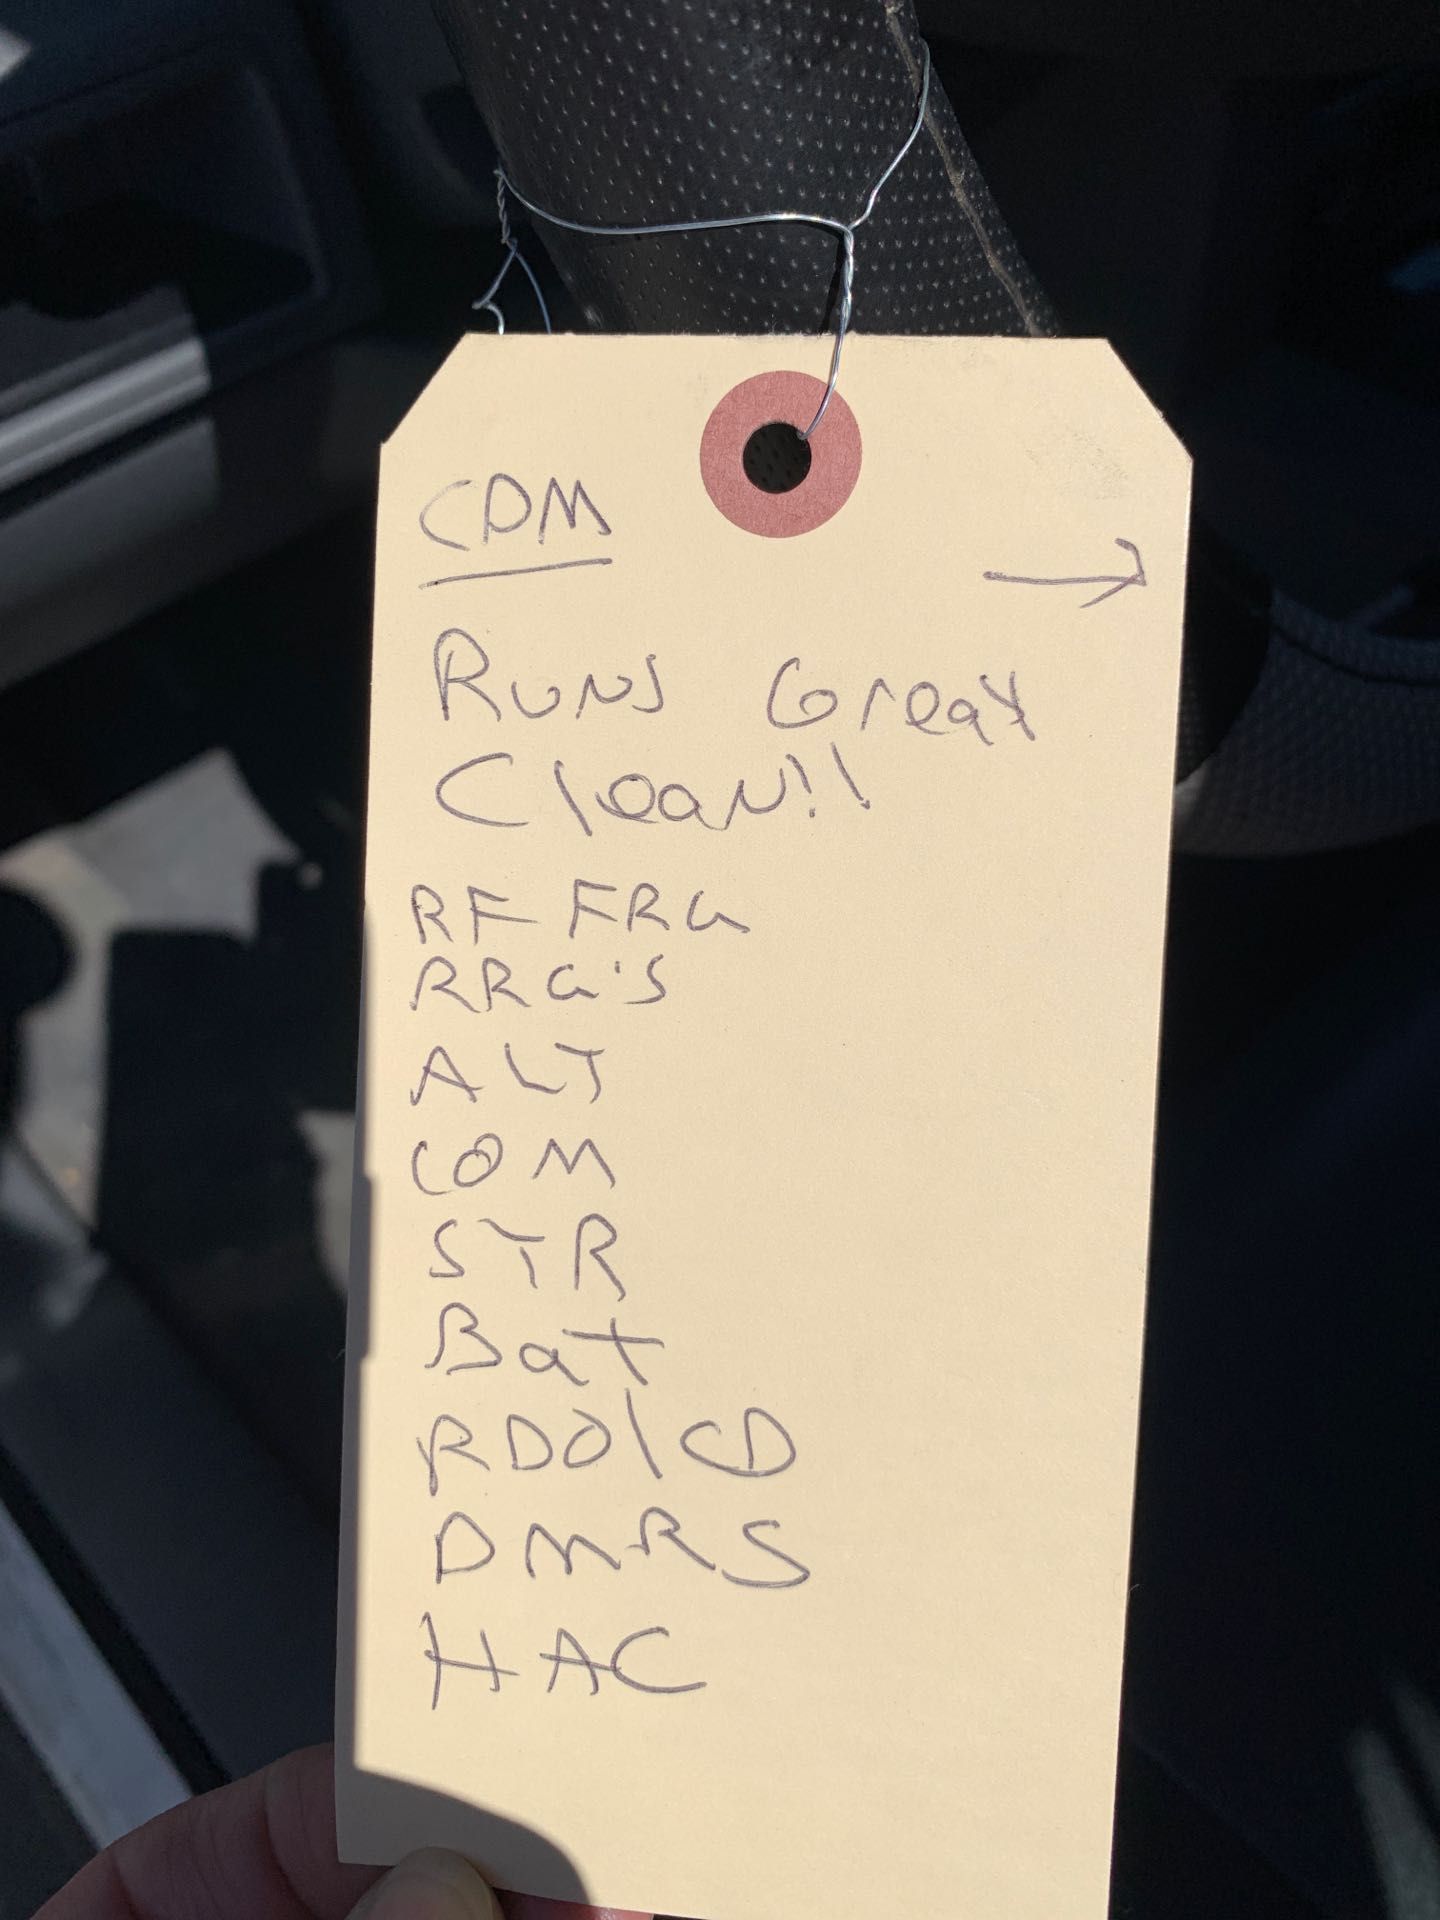 CDM
→
Runs Great
Clean!!
RF FRG
RRG'S
ALT
COM
STR
Bat
RDO/CD
DMRS
HAC